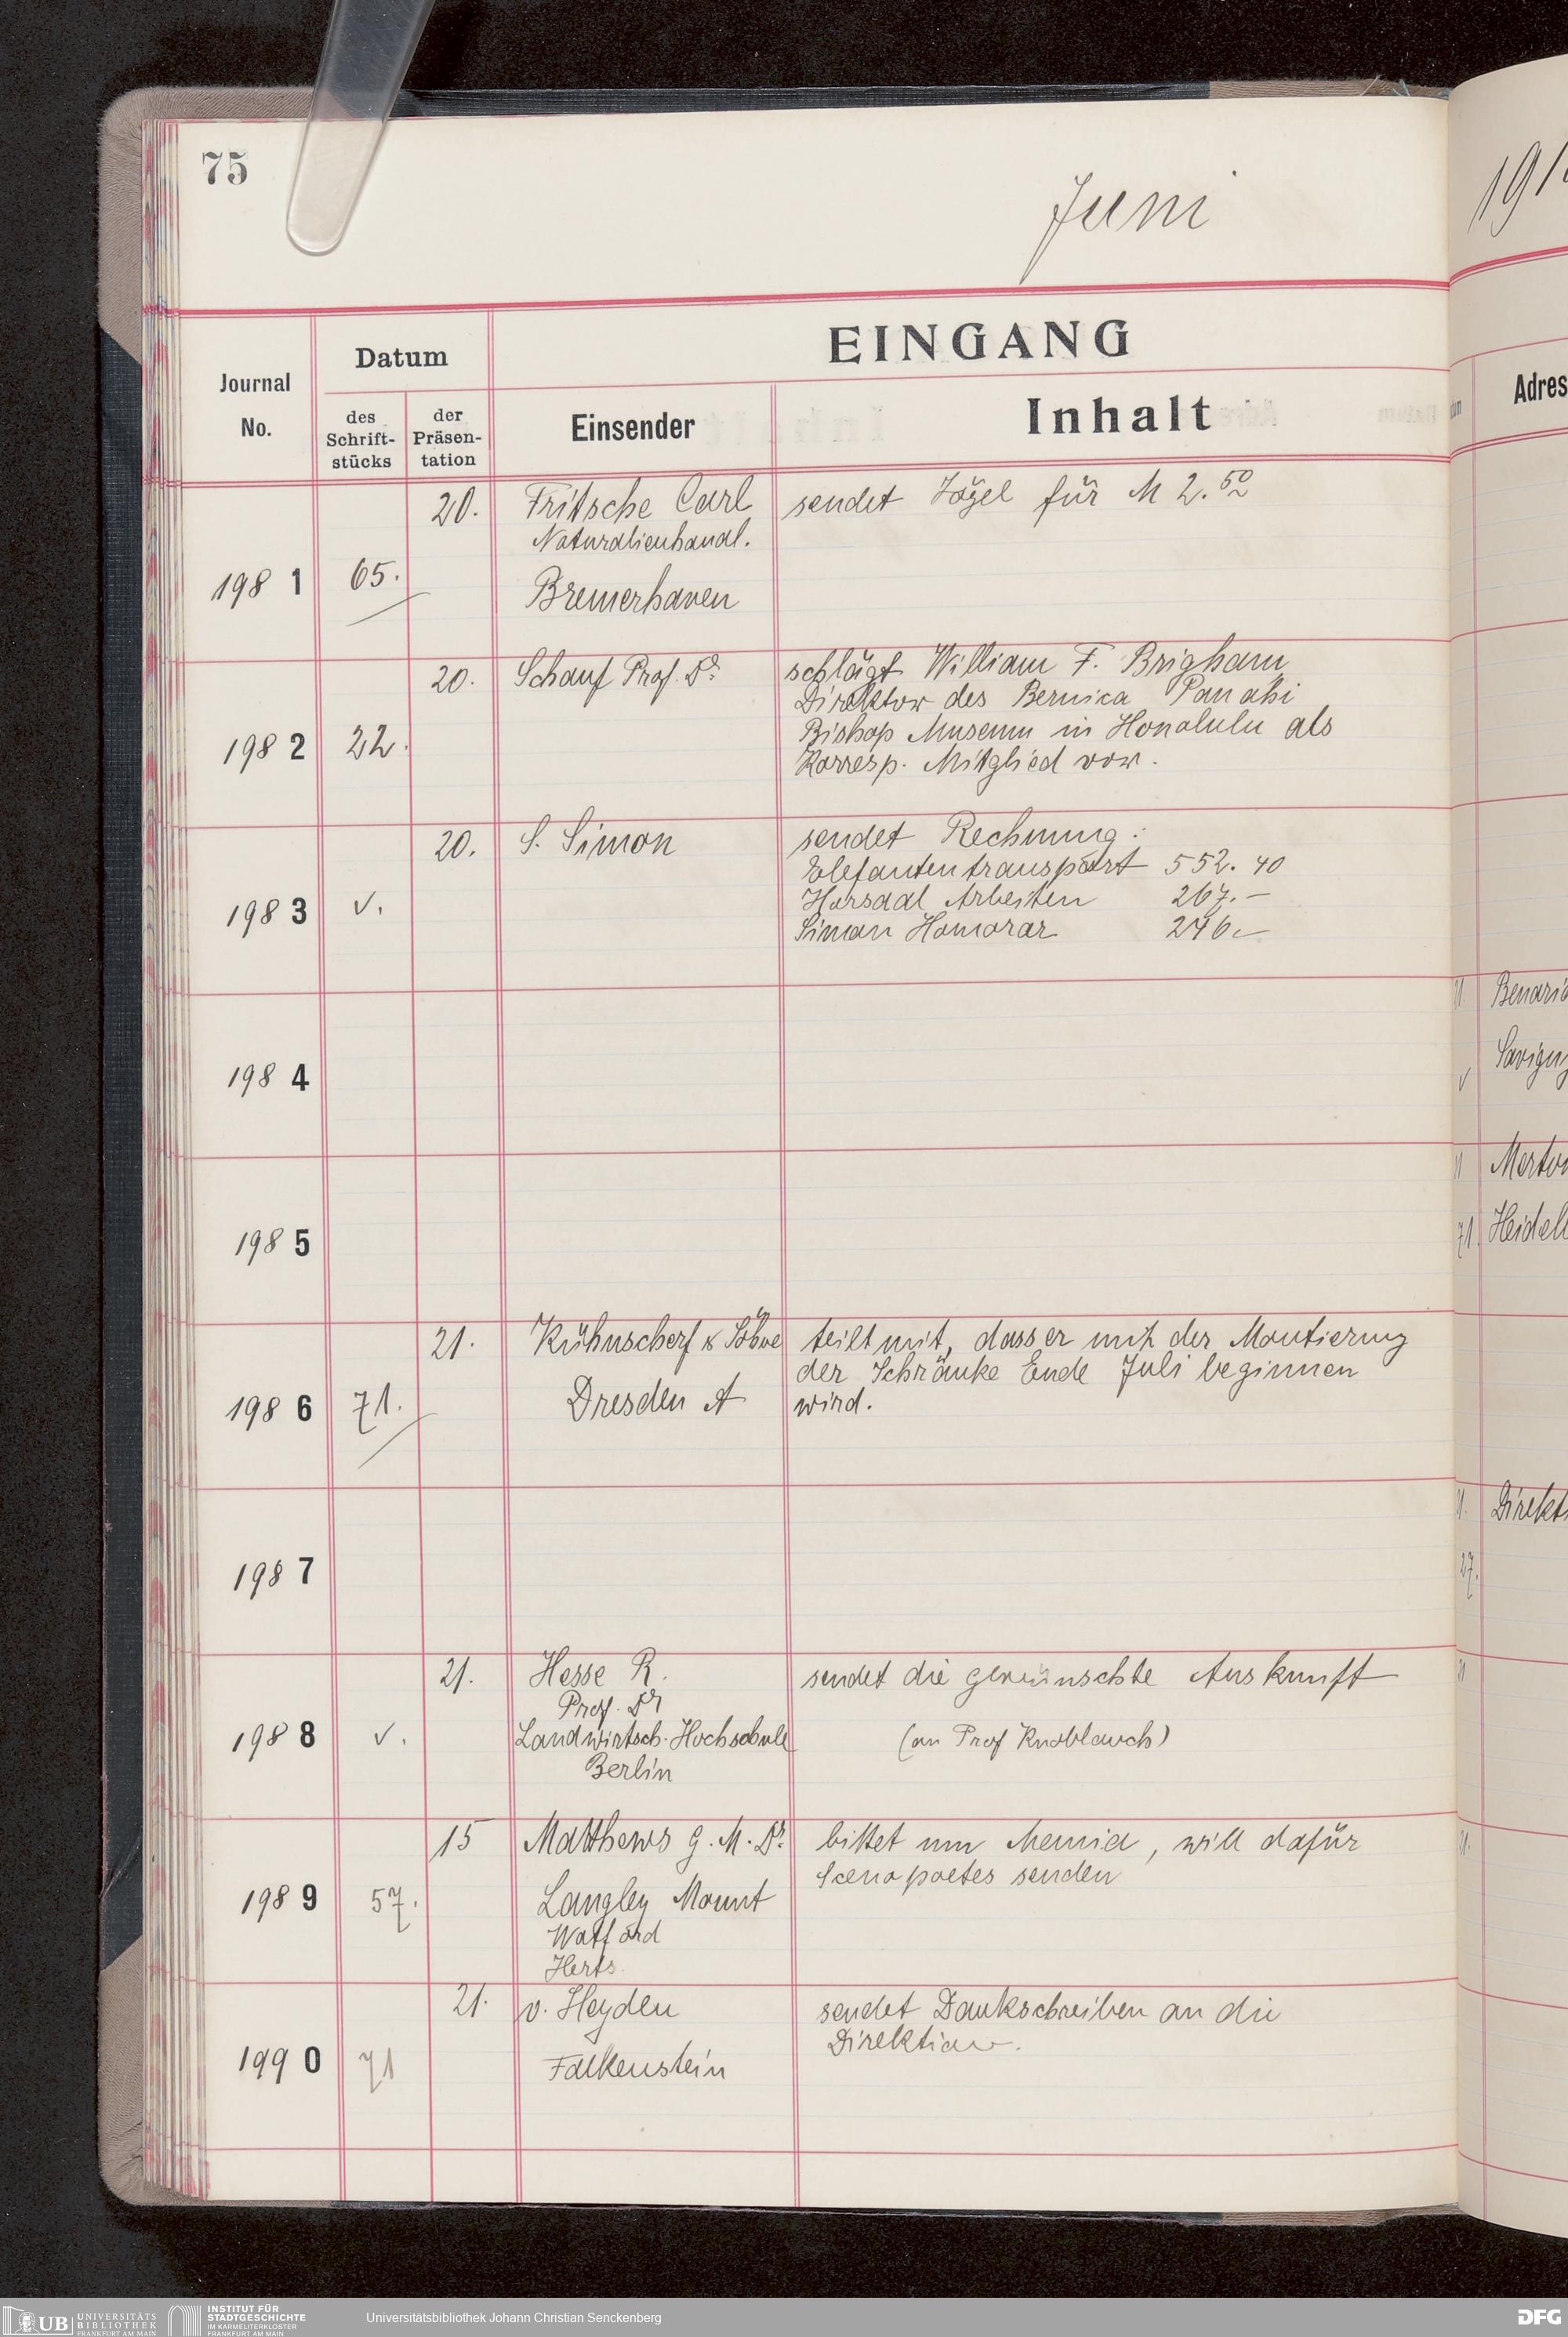 75
Juni
191
EINGANG
Journal No.
Datum
des Schrift-stücks
der Präsen-tation
Einsender
Inhalt
Adres
1981 65. 20. Fritsche Carl sendet Vögel für M 2.50
Naturalienhandl.
Bremerhaven
1982 22. 20. Schauf Prof. Dr. schlägt William F. Brigham
Direktor des Bernica Panahi
Bishop Museum in Honolulu als
Korresp. Mitglied vor.
1983 v. 20. S. Simon sendet Rechnung:
Elefantentransport 552.40
Hörsaal Arbeiten 267.–
Simon Honorar 246.–
1984
Benario
Savigny
1985
Merton
71. Heidel
1986 71. 21. Kühnscherf & Söhne teilt mit, dass er mit der Montierung
der Schränke Ende Juli beginnen
Dresden A wird.
1987
Direkt
27.
1988 v. 21. Hesse R. sendet die gewünschte Auskunft
Prof. Dr
Landwirtsch. Hochschule (an Prof Knoblauch)
Berlin
1989 57. 15 Matthews G. M. Dr. bittet um Memia, will dafür
Scenopoetes senden
Langley Mount
Watford
Herts.
1990 71 21. v. Heyden sendet Dankschreiben an die
Direktion.
Falkenstein
UB UNIVERSITÄTS BIBLIOTHEK FRANKFURT AM MAIN
INSTITUT FÜR STADTGESCHICHTE IM KARMELITERKLOSTER FRANKFURT AM MAIN
Universitätsbibliothek Johann Christian Senckenberg
DFG